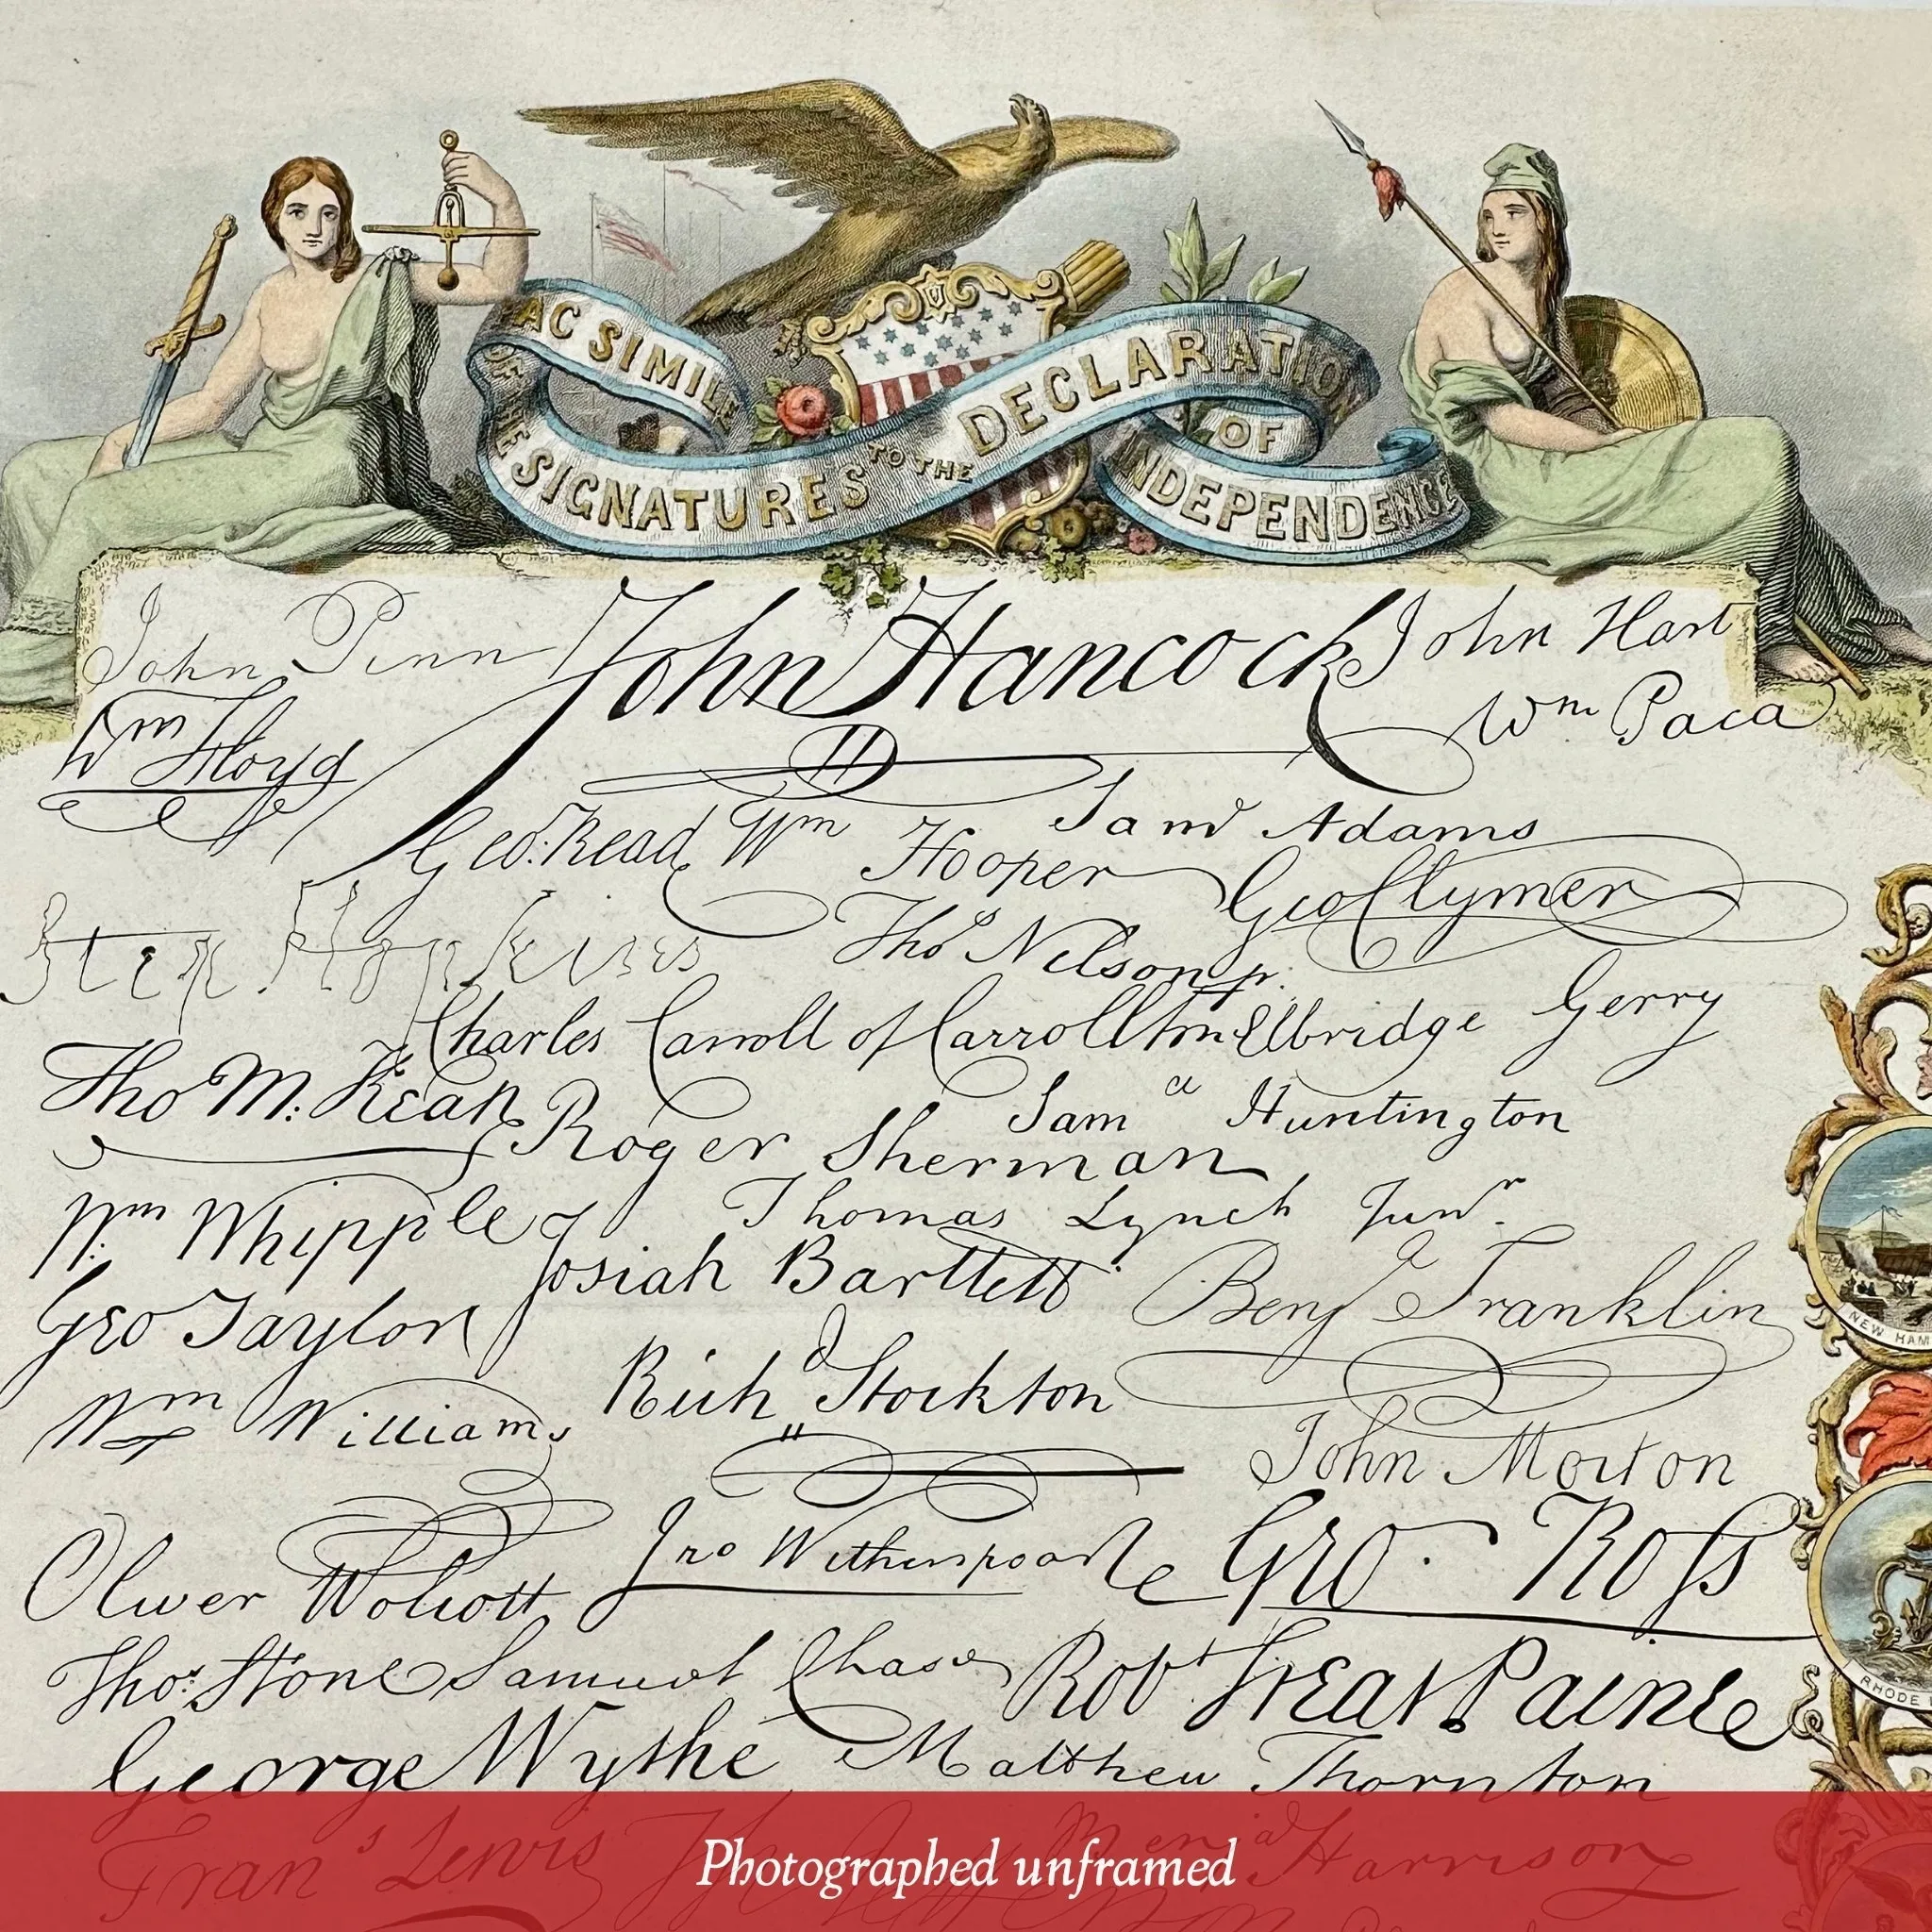 FAC SIMILE
OF THE SIGNATURES TO THE DECLARATION
OF
INDEPENDENCE
John Penn John Hancock John Hart
Wm Floyd Wm Paca
Geo. Read Wm Hooper Saml Adams
Geo Clymer
Step Hopkins Thos Nelson jr.
Charles Carroll of Carrollton Elbridge Gerry
Tho M. Kean Roger Sherman Saml Huntington
Wm Whipple Thomas Lynch Junr.
Josiah Bartlett Benj Franklin
Geo Taylor
Richd Stockton
Wm Williams John Morton
Oliver Wolcott Jno Witherspoon Geo. Ross
Thos. Stone Samuel Chase Robt Treat Paine
George Wythe Matthew Thornton
Frans Lewis Benjd Harrison
NEW HAM
RHODE
Photographed unframed